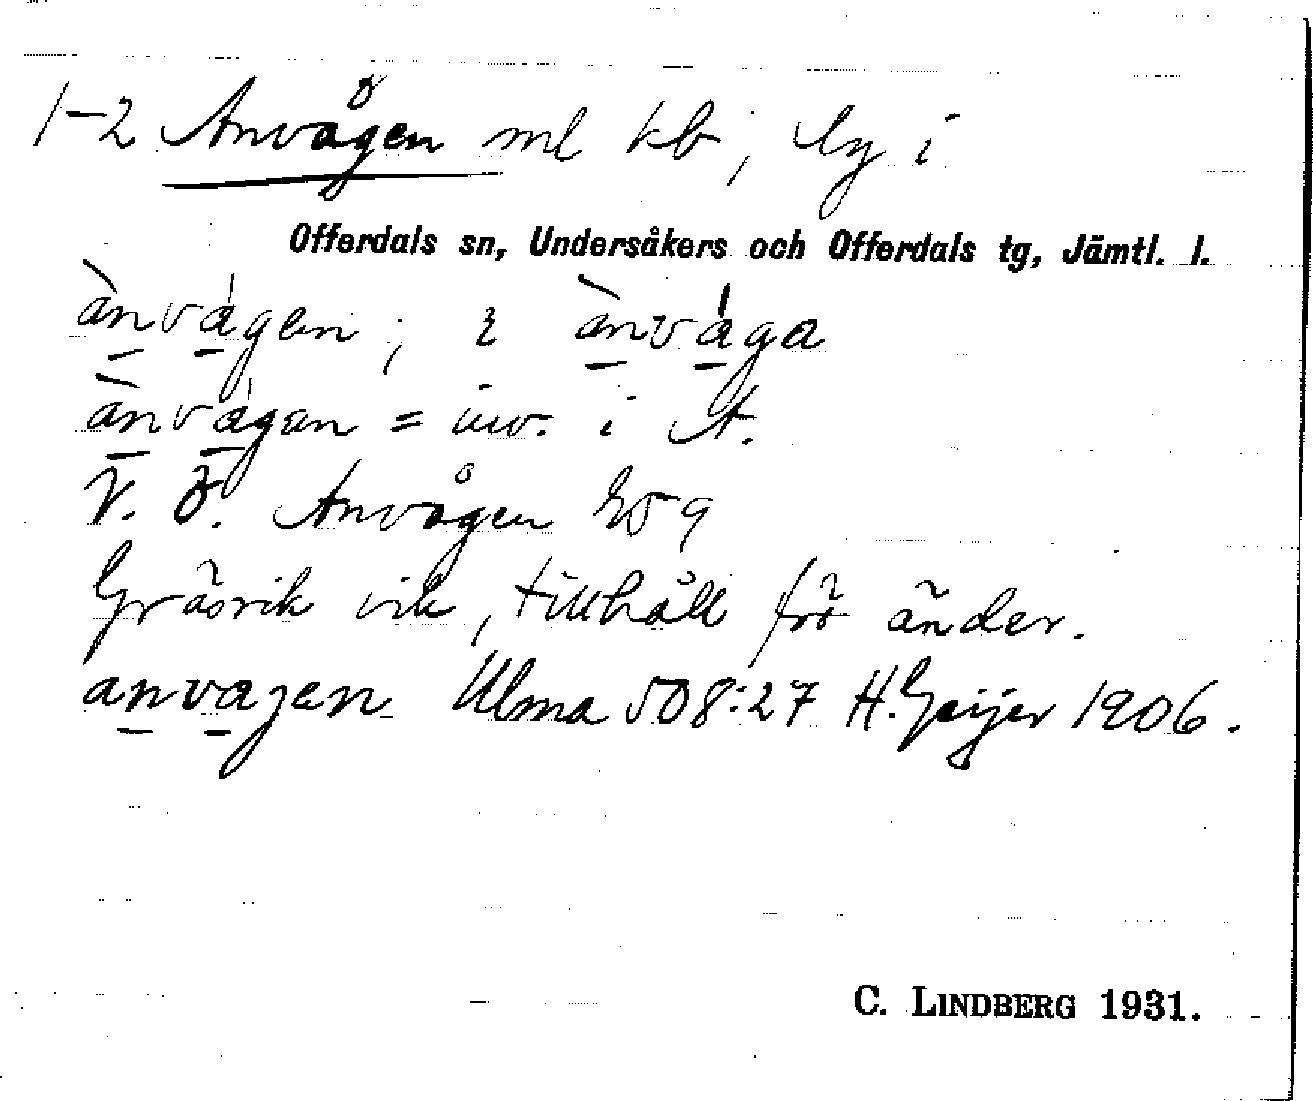 1-2 Anvågen ml kb; by i
Offerdals sn, Undersåkers och Offerdals tg, Jämtl. l.
ànvágen; i ànvága
ànvágan = inv. i A.
V. Ö. Anvågen 259
Gräsrik vik, tillhåll för änder.
anvagen Ulma 508:27 H. Geijer 1906.
C. LINDBERG 1931.